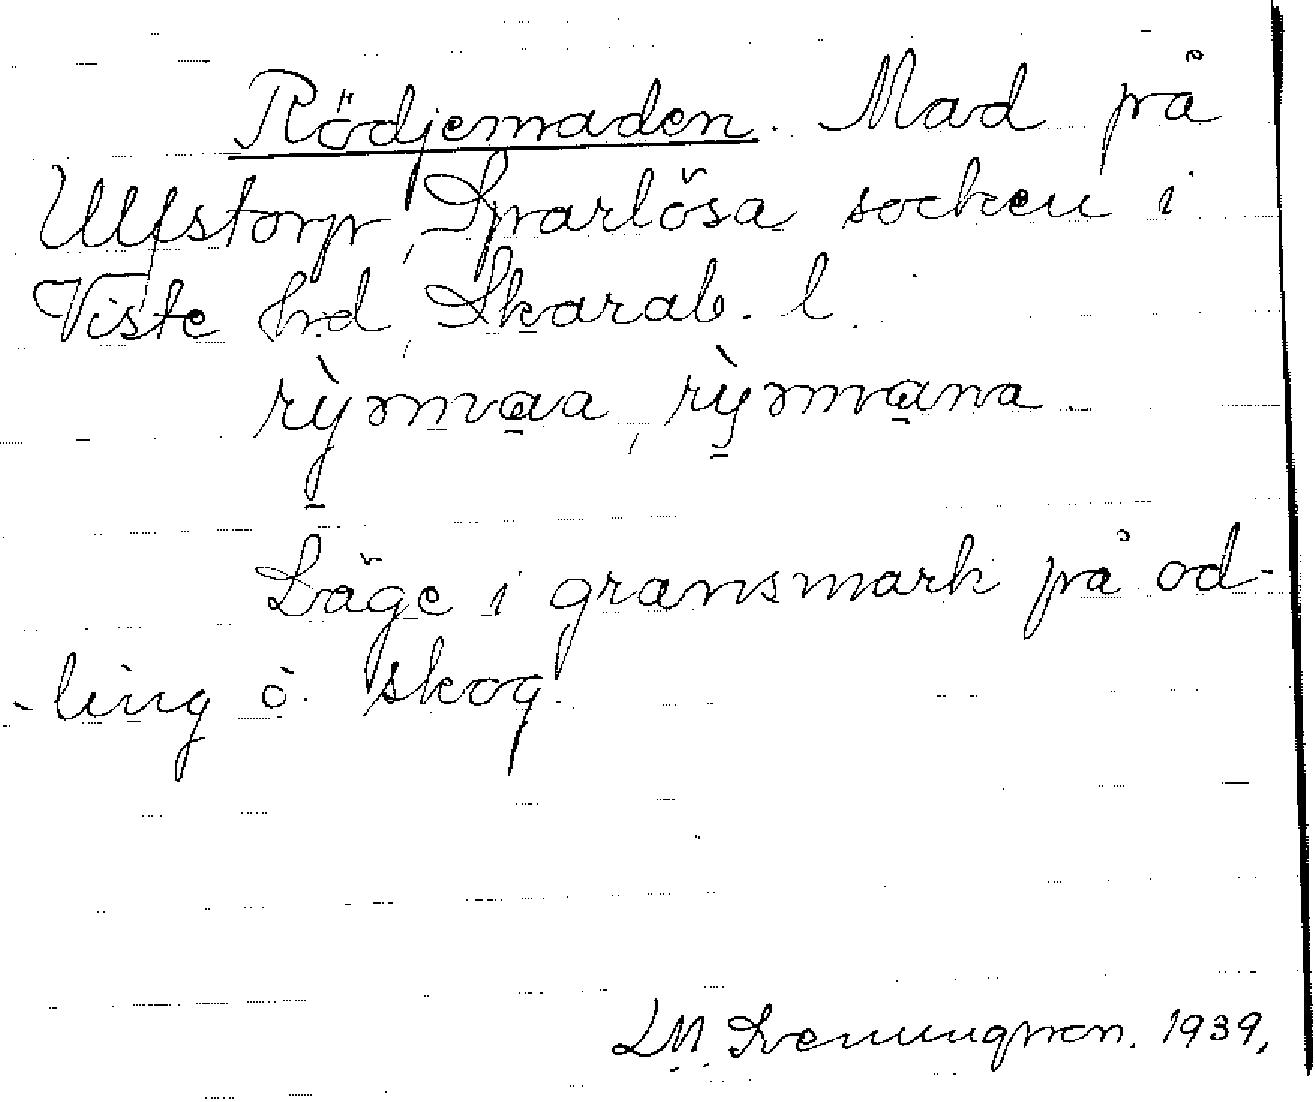 Rödjemaden. Mad på
Ulfstorp, Sparlösa socken i
Viste hd, Skarab. l.
rỳmmaa, rỳmmana
Läge i gransmark på od-
-ling ö. skog.
LM. Svenungsson. 1939,